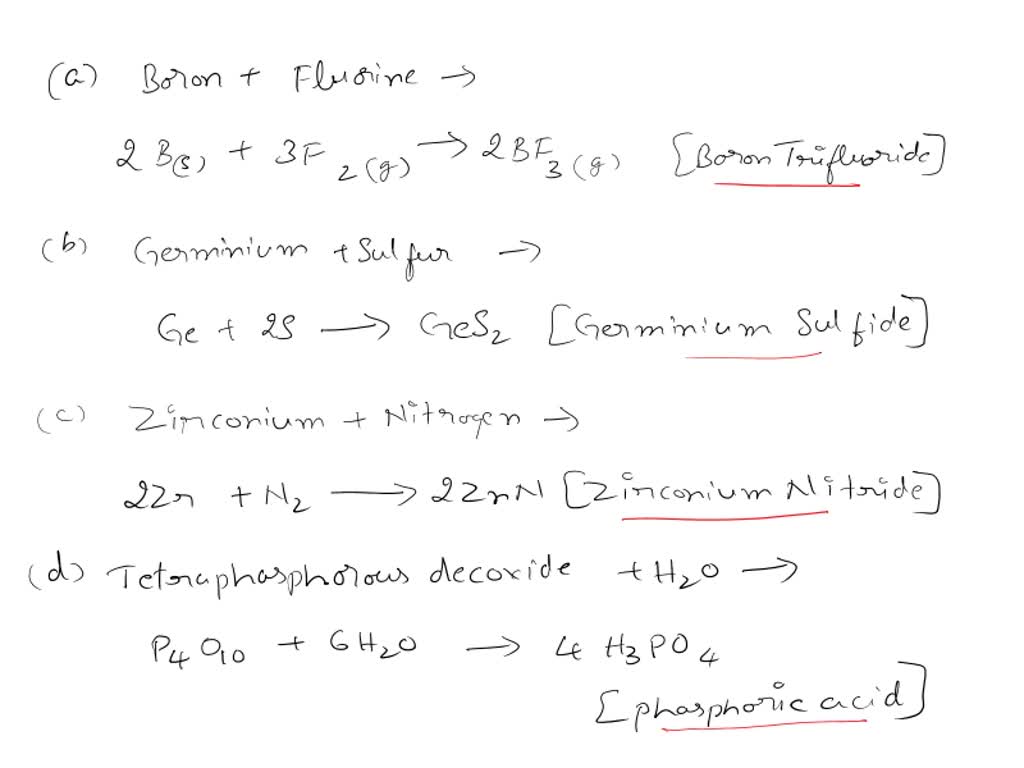 (a) Boron + Fluorine →
2 B(s) + 3F2(g) → 2BF3(g) [Boron Trifluoride]
(b) Germinium + Sulfur →
Ge + 2S → GeS2 [Germinium Sulfide]
(c) Zirconium + Nitrogen →
2Zr + N2 → 2ZrN [Zirconium Nitride]
(d) Tetraphasphorous decoxide + H2O →
P4O10 + 6H2O → 4 H3PO4
[phasphoric acid]